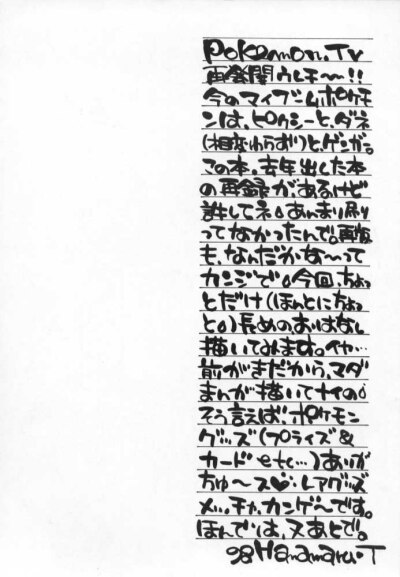 Pokemon.TV
再発開ウレチ〜!!
今のマイブームポケモ
ンは、ピクシーと、ダネ
(相変わらず)と、ゲンガ。
この本、去年出した本
の再録が、あるけど
許してネ。あんまり刷
ってなかったんで。再版
も、なんだかな〜って
カンジで。今回、ちょっ
とだけ(ほんとにちょっ
と。)長めのおはなし
描いてみます。イヤ…
前がまだだから、マダ
まんが描いてナイの。
そう言えば、ポケモン
グッズ(プライズ&
カードetc…)ありが
ちゅ〜ス♡、レアグッズ
メッ…チャ、カンゲ〜です。
ほんでは、又あとで。
'98 Hanamaru・T